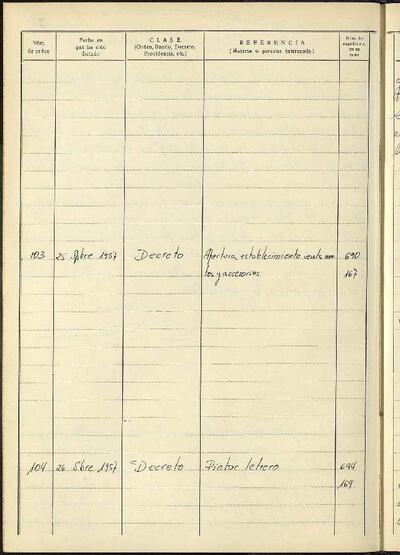 Núm. de orden
Fecha en que ha sido dictado
CLASE
(Orden, Bando, Decreto, Providencia, etc.)
REFERENCIA
(Materia o persona interesada)
Núm. del expediente, en su caso
103 25 Sbre 1957 Decreto Apertura establecimiento venta mo 690
tos y accesorios. 167
104 26 Sbre 1957 Decreto Pintar letrero 694
169.